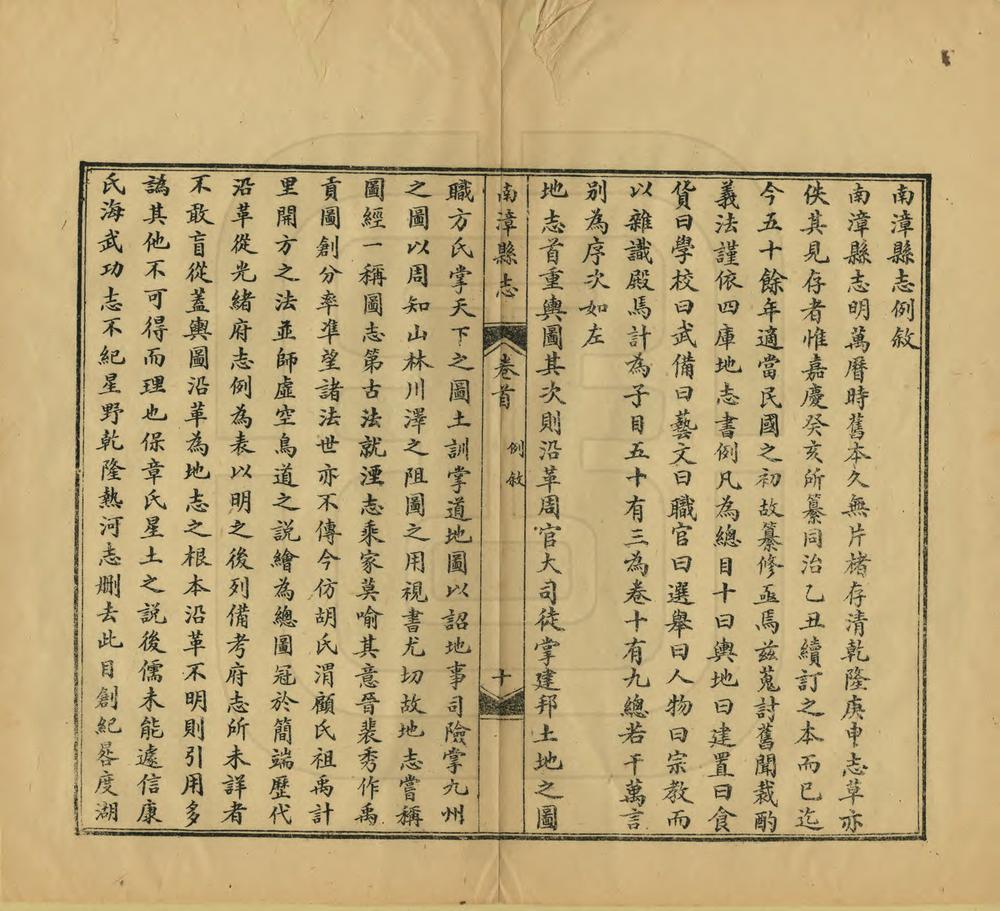 南漳縣志例敘
南漳縣志明萬曆時舊本久無片楮存清乾隆庚申志草亦
佚其見存者惟嘉慶癸亥所纂同治乙丑續訂之本而已迄
今五十餘年適當民國之初故纂修亟焉茲蒐討舊聞裁酌
義法謹依四庫地志書例凡為總目十曰輿地曰建置曰食
貨曰學校曰武備曰藝文曰職官曰選舉曰人物曰宗教而
以雜識殿焉計為子目五十有三為卷十有九總若干萬言
別為序次如左
地志首重輿圖其次則沿革周官大司徒掌建邦土地之圖
南漳縣志 卷首 例敘 十
職方氏掌天下之圖土訓掌道地圖以詔地事司險掌九州
之圖以周知山林川澤之阻圖之用視書尤切故地志嘗稱
圖經一稱圖志第古法就湮志乘家莫喻其意晉裴秀作禹
貢圖創分率準望諸法世亦不傳今仿胡氏渭顧氏祖禹計
里開方之法並師虛空鳥道之說繪為總圖冠於簡端歷代
沿革從光緒府志例為表以明之後列備考府志所未詳者
不敢盲從蓋輿圖沿革為地志之根本沿革不明則引用多
譌其他不可得而理也保章氏星土之說後儒未能遽信康
氏海武功志不紀星野乾隆熱河志刪去此目創紀晷度湖